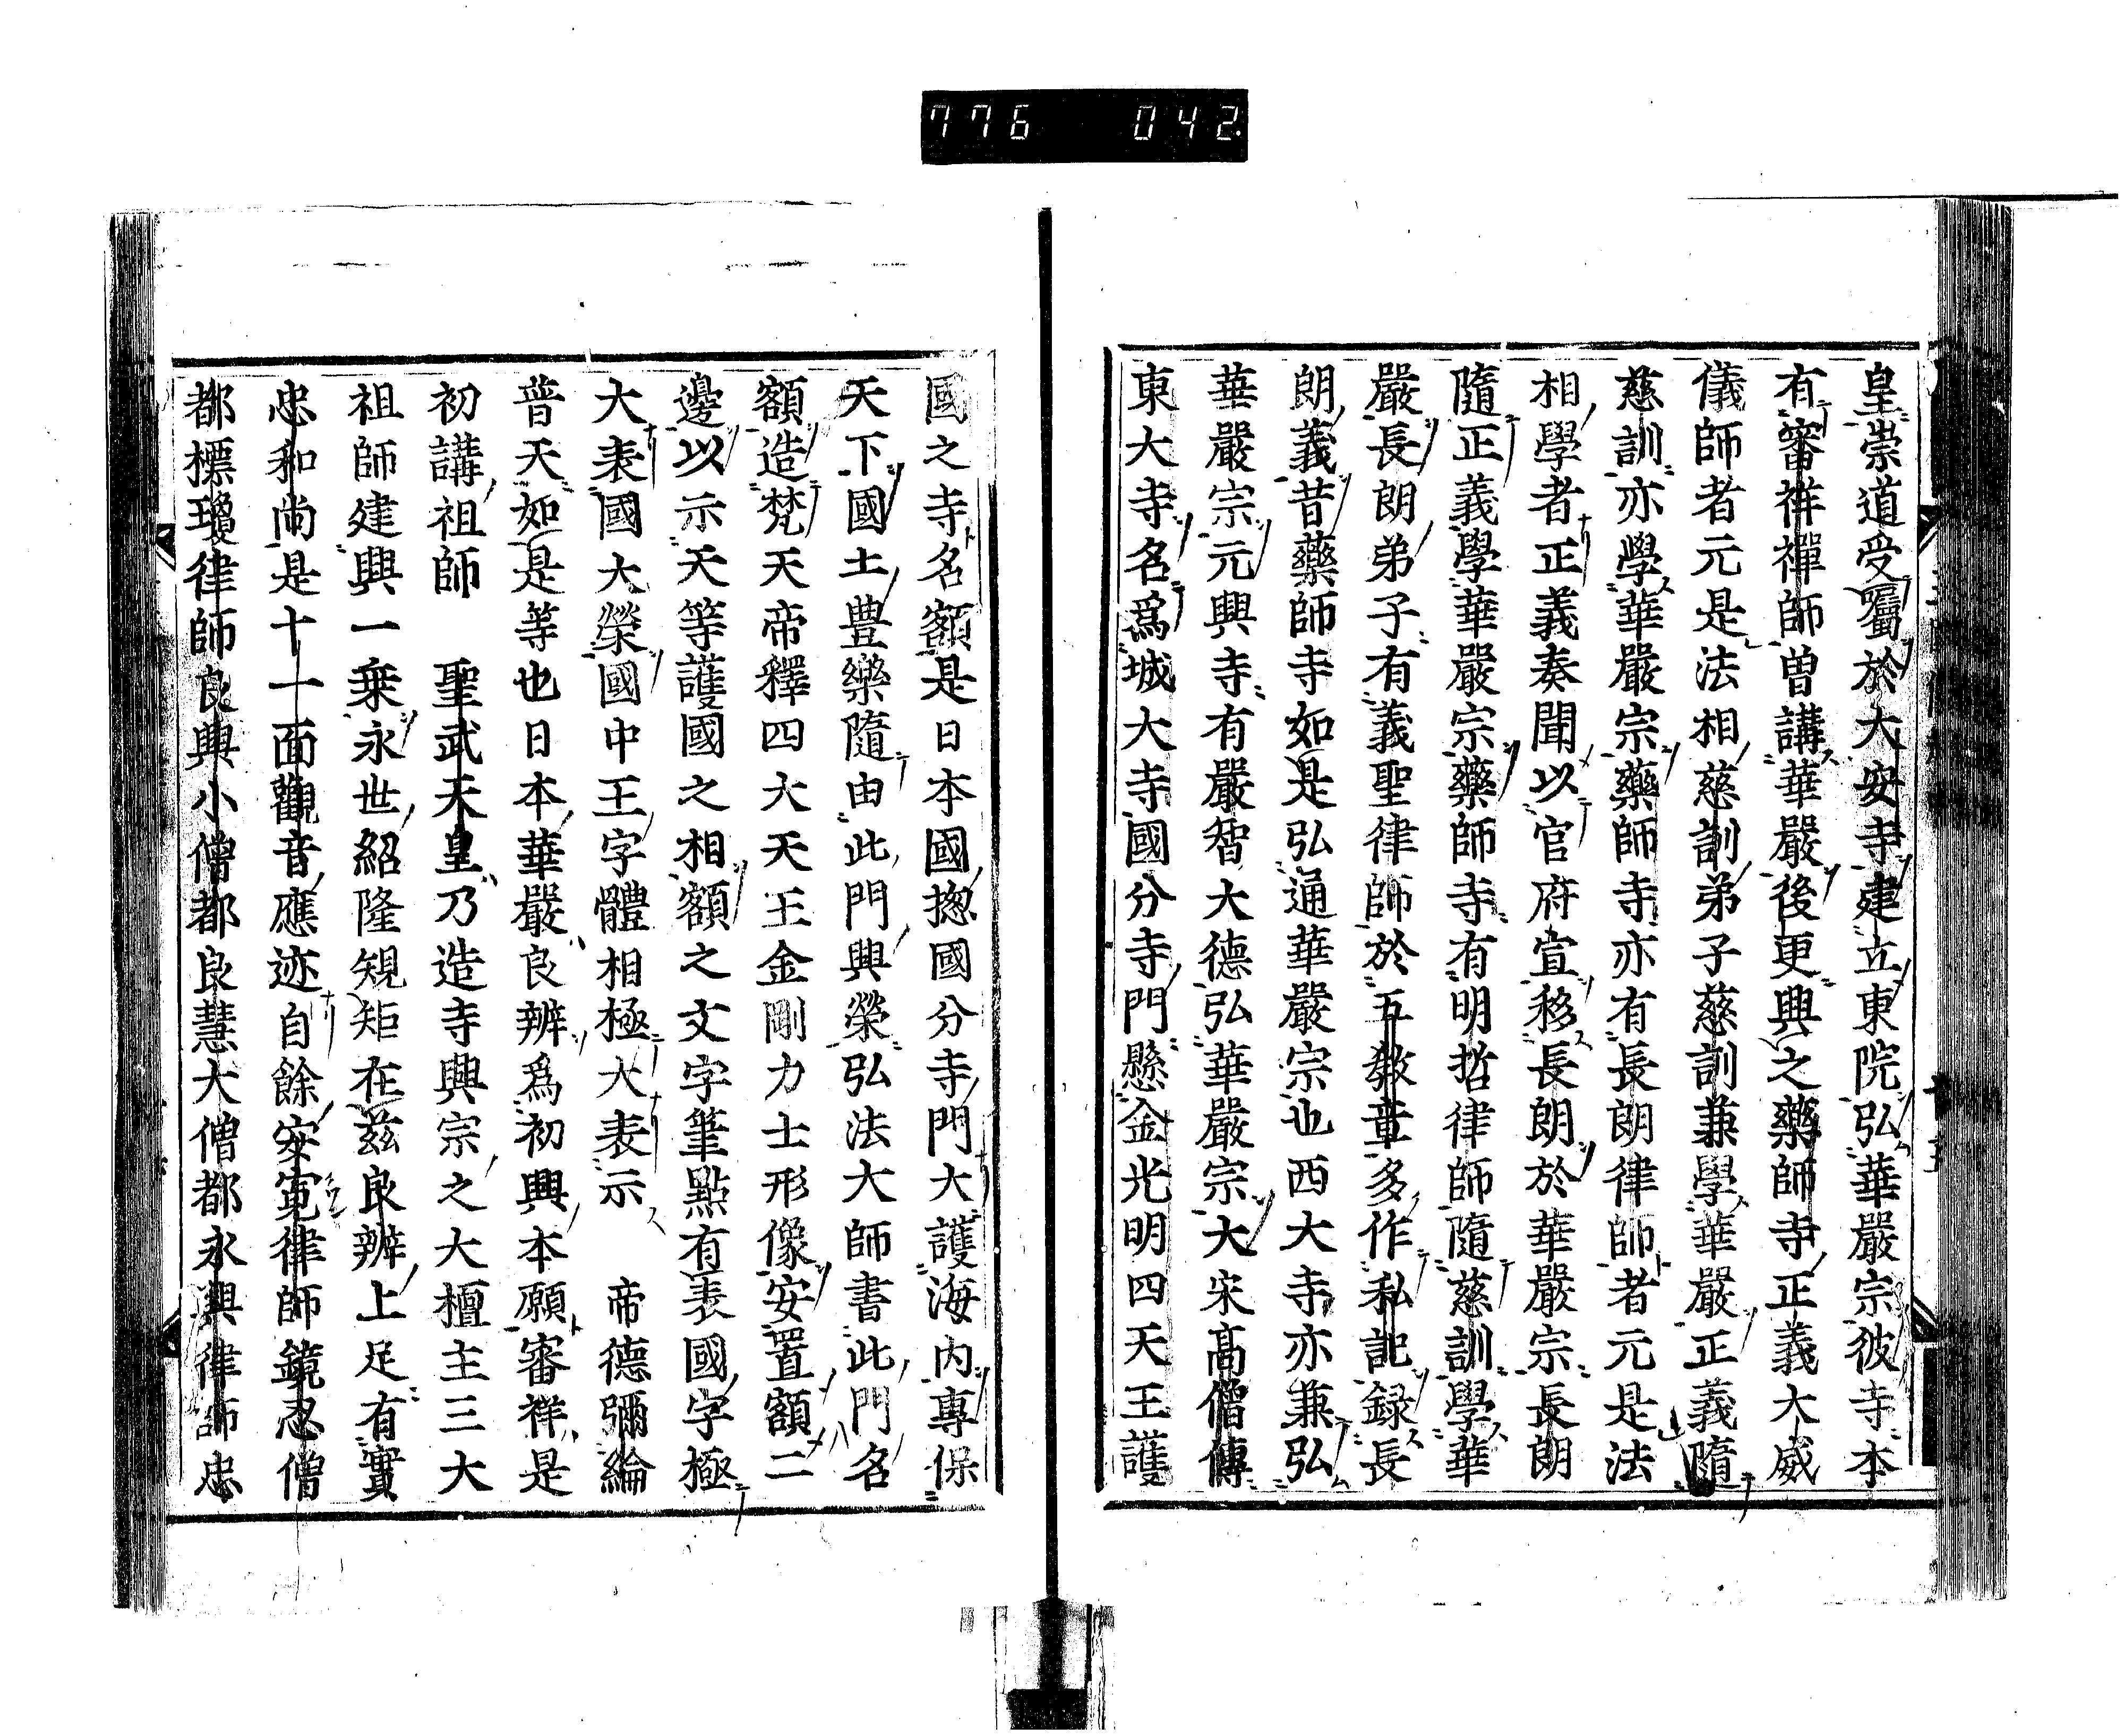 776 042
皇崇道受囑於大安寺建立東院弘華嚴宗彼寺本
有審祥禪師曽講華嚴後更興之藥師寺正義大威
儀師者元是法相慈訓弟子慈訓兼學華嚴正義隨
慈訓亦學華嚴宗藥師寺亦有長朗律師者元是法
相學者正義奏聞以官府宣移長朗於華嚴宗長朗
隨正義學華嚴宗藥師寺有明哲律師隨慈訓學華
嚴長朗弟子有義聖律師於五敎章多作私記録長
朗義昔藥師寺如是弘通華嚴宗也西大寺亦兼弘
華嚴宗元興寺有嚴智大德弘華嚴宗大宋髙僧傳
東大寺名爲城大寺國分寺門懸金光明四天王護
國之寺名額是日本國揔國分寺門大護海内專保
天下國土豊樂隨由此門興榮弘法大師書此門名
額造梵天帝釋四大天王金剛力士形像安置額二
邊以示天等護國之相額之文字筆點有表國字極
大表國大榮國中王字體相極大表示　帝德彌綸
普天如是等也日本華嚴良辨爲初興本願審祥是
初講祖師　聖武天皇乃造寺興宗之大檀主三大
祖師建興一乗永世紹隆規矩在兹良辨上足有實
忠和尚是十一面觀音應迹自餘安寛律師鏡忍僧
都標瓊律師良興小僧都良慧大僧都永興律師忠